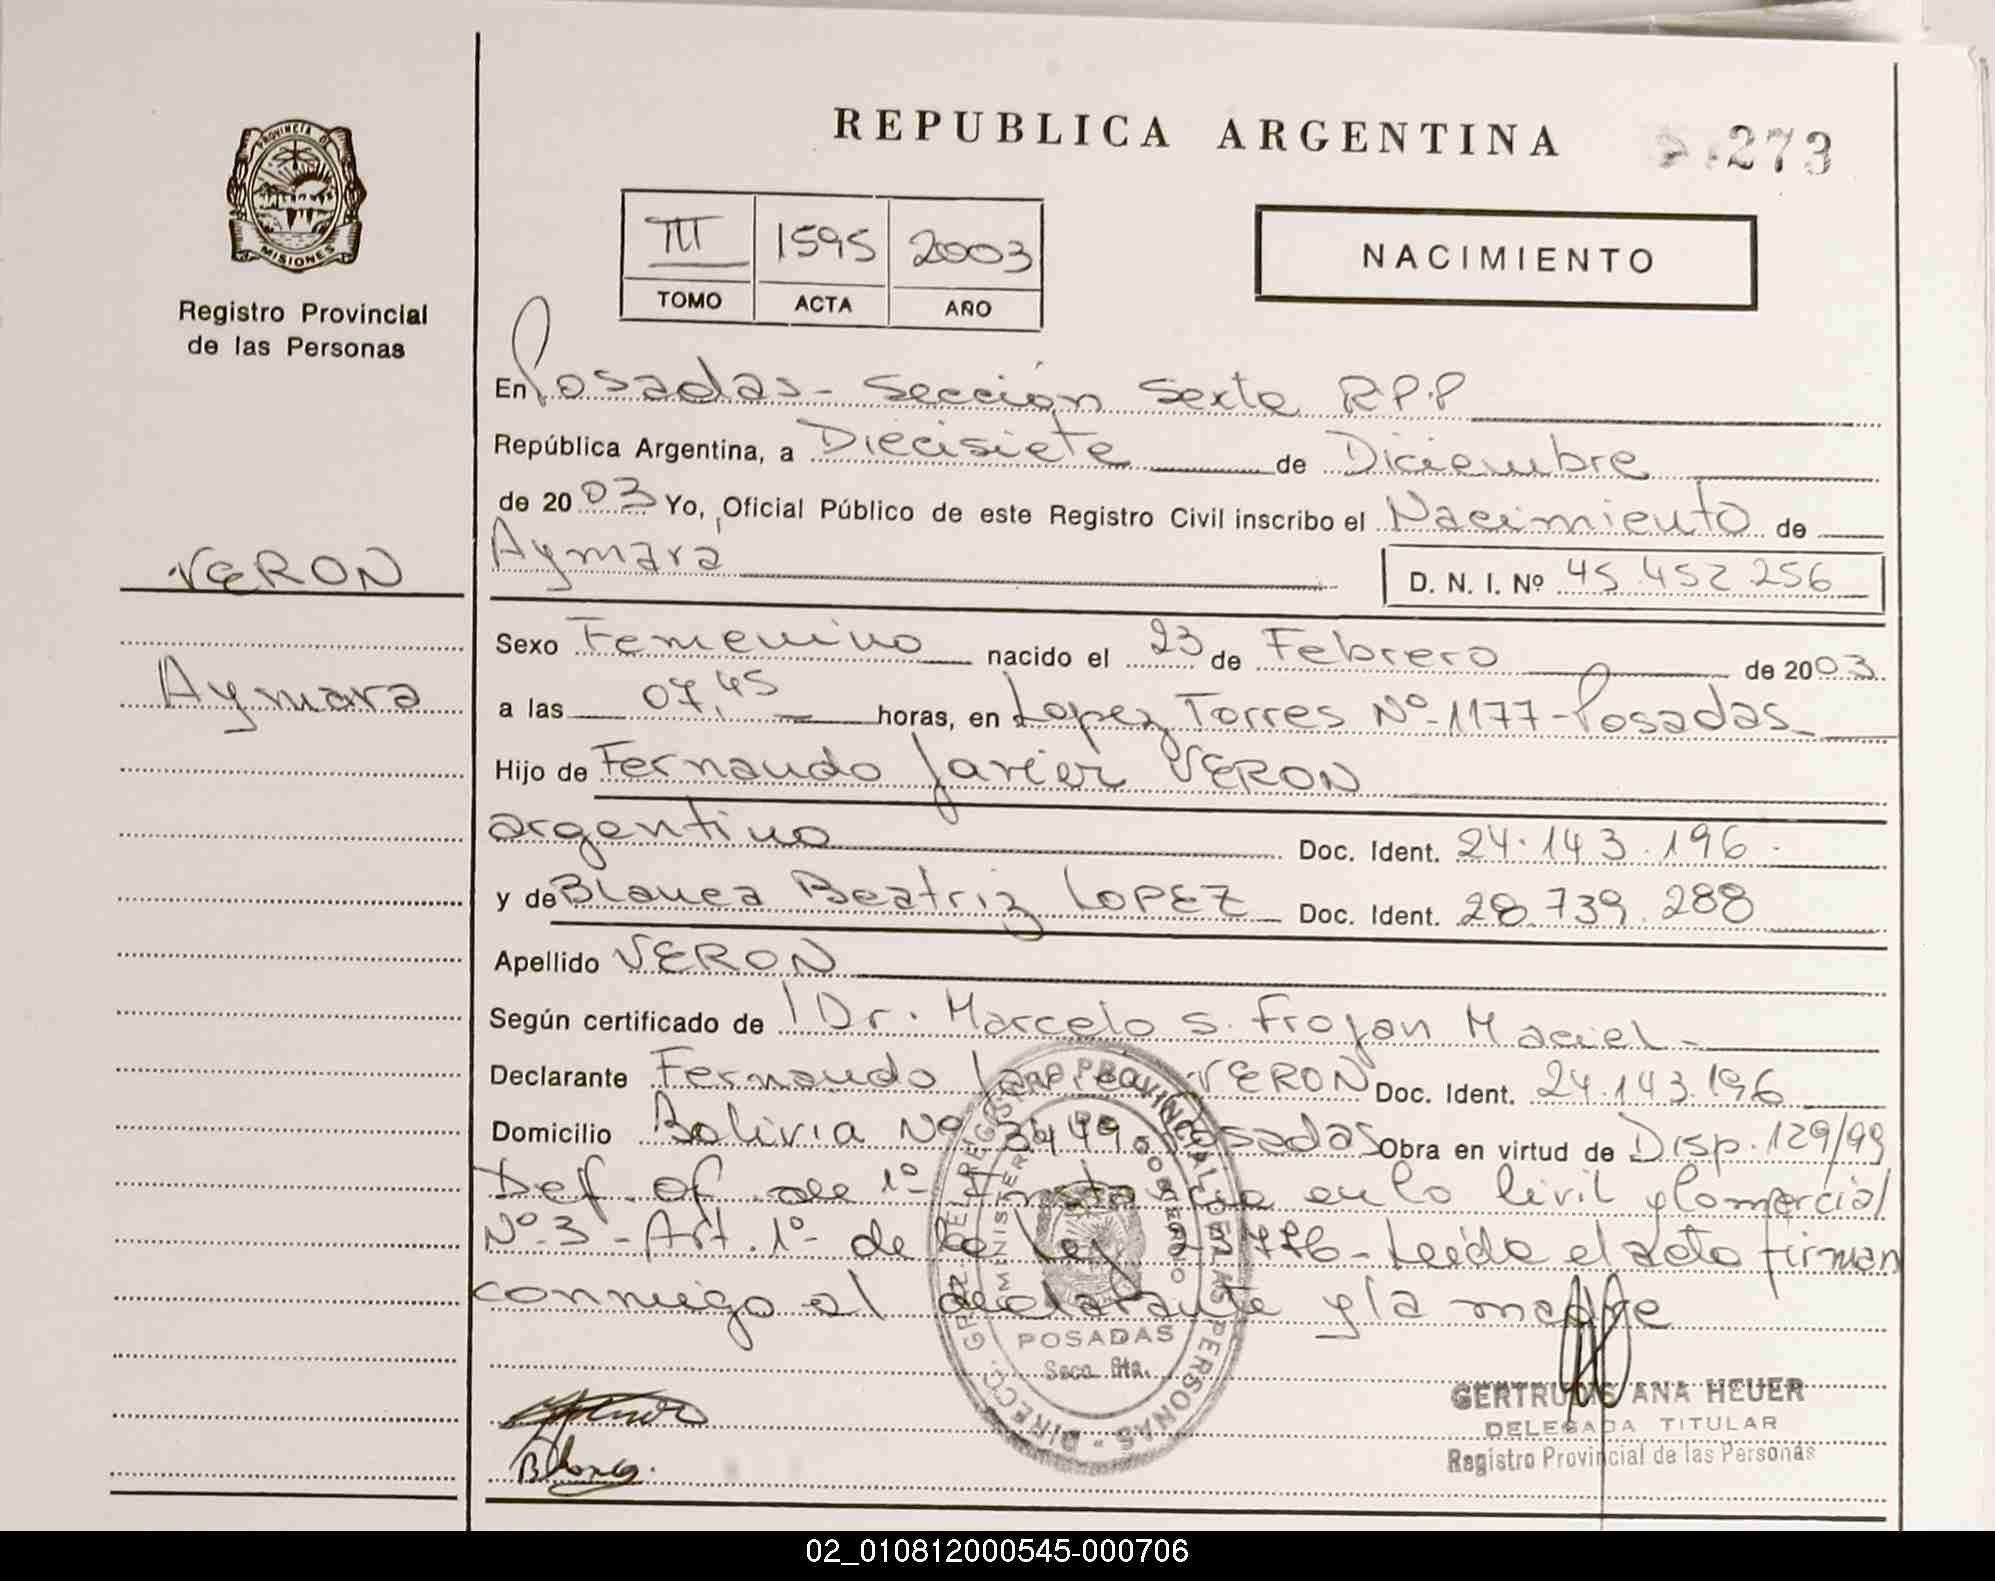 PROVINCIA D
MISIONES
Registro Provincial
de las Personas
VERON
Aymara
REPUBLICA ARGENTINA
273
III 1595 2003
TOMO ACTA AÑO
NACIMIENTO
En Posadas - Sección Sexta R.P.P
República Argentina, a Diecisiete de Diciembre
de 2003 Yo, Oficial Público de este Registro Civil inscribo el Nacimiento de
Aymara D. N. I. Nº 45.452.256
Sexo Femenino nacido el 23 de Febrero de 2003
a las 07,45 horas, en Lopez Torres Nº-1177-Posadas-
Hijo de Fernando Javier VERON
argentino Doc. Ident. 24.143.196.
y de Blanca Beatriz LOPEZ Doc. Ident. 28.739.288
Apellido VERON
Según certificado de Dr. Marcelo S. Frojan Maciel-
Declarante Fernando Javier VERON Doc. Ident. 24.143.196
Domicilio Bolivia Nº 3449. Posadas Obra en virtud de Disp. 129/99
Def. of. de 1º Instancia en lo Civil y Comercial
Nº-3 - Art. 1º de la Ley 23776- Leída el acta firman
conmigo el declarante y la madre
DIRECC. GRAL. DEL REGISTRO PROVINCIAL DE LAS PERSONAS
MINISTERIO DE GOBIERNO
POSADAS
Secc. 6ta.
Blanca.
GERTRUDIS ANA HEUER
DELEGADA TITULAR
Registro Provincial de las Personas
02_010812000545-000706